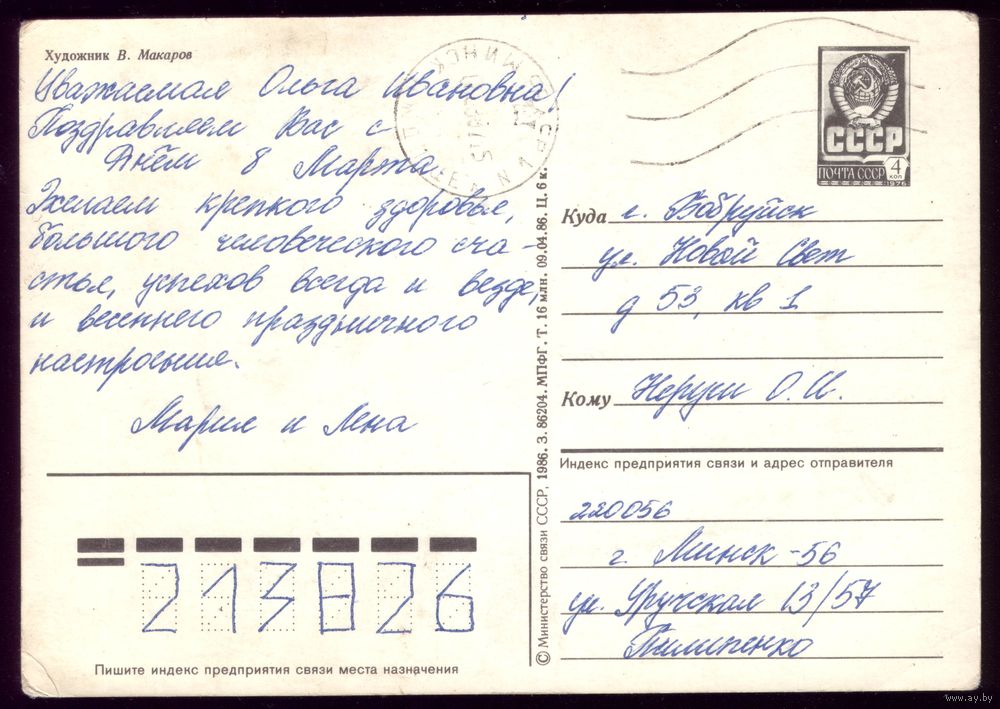 Художник В. Макаров
Уважаемая Ольга Ивановна!
Поздравляем Вас с
Днём 8 Марта.
Желаем крепкого здоровья,
большого человеческого сча-
стья, успехов всегда и везде,
и весеннего праздничного
настроения.
Мария и Лена
СССР
ПОЧТА СССР 4 КОП
1976
Куда г. Бобруйск
ул. Новый Свет
д 53, кв 1
Кому Неруш О.И.
Индекс предприятия связи и адрес отправителя
220056
г. Минск-56
ул. Уручская 13/57
Пилипенко
213826
Пишите индекс предприятия связи места назначения
© Министерство связи СССР, 1986. З. 86204. МПФГ. Т. 16 млн. 09.04.86. Ц. 6 к.
www.ay.by